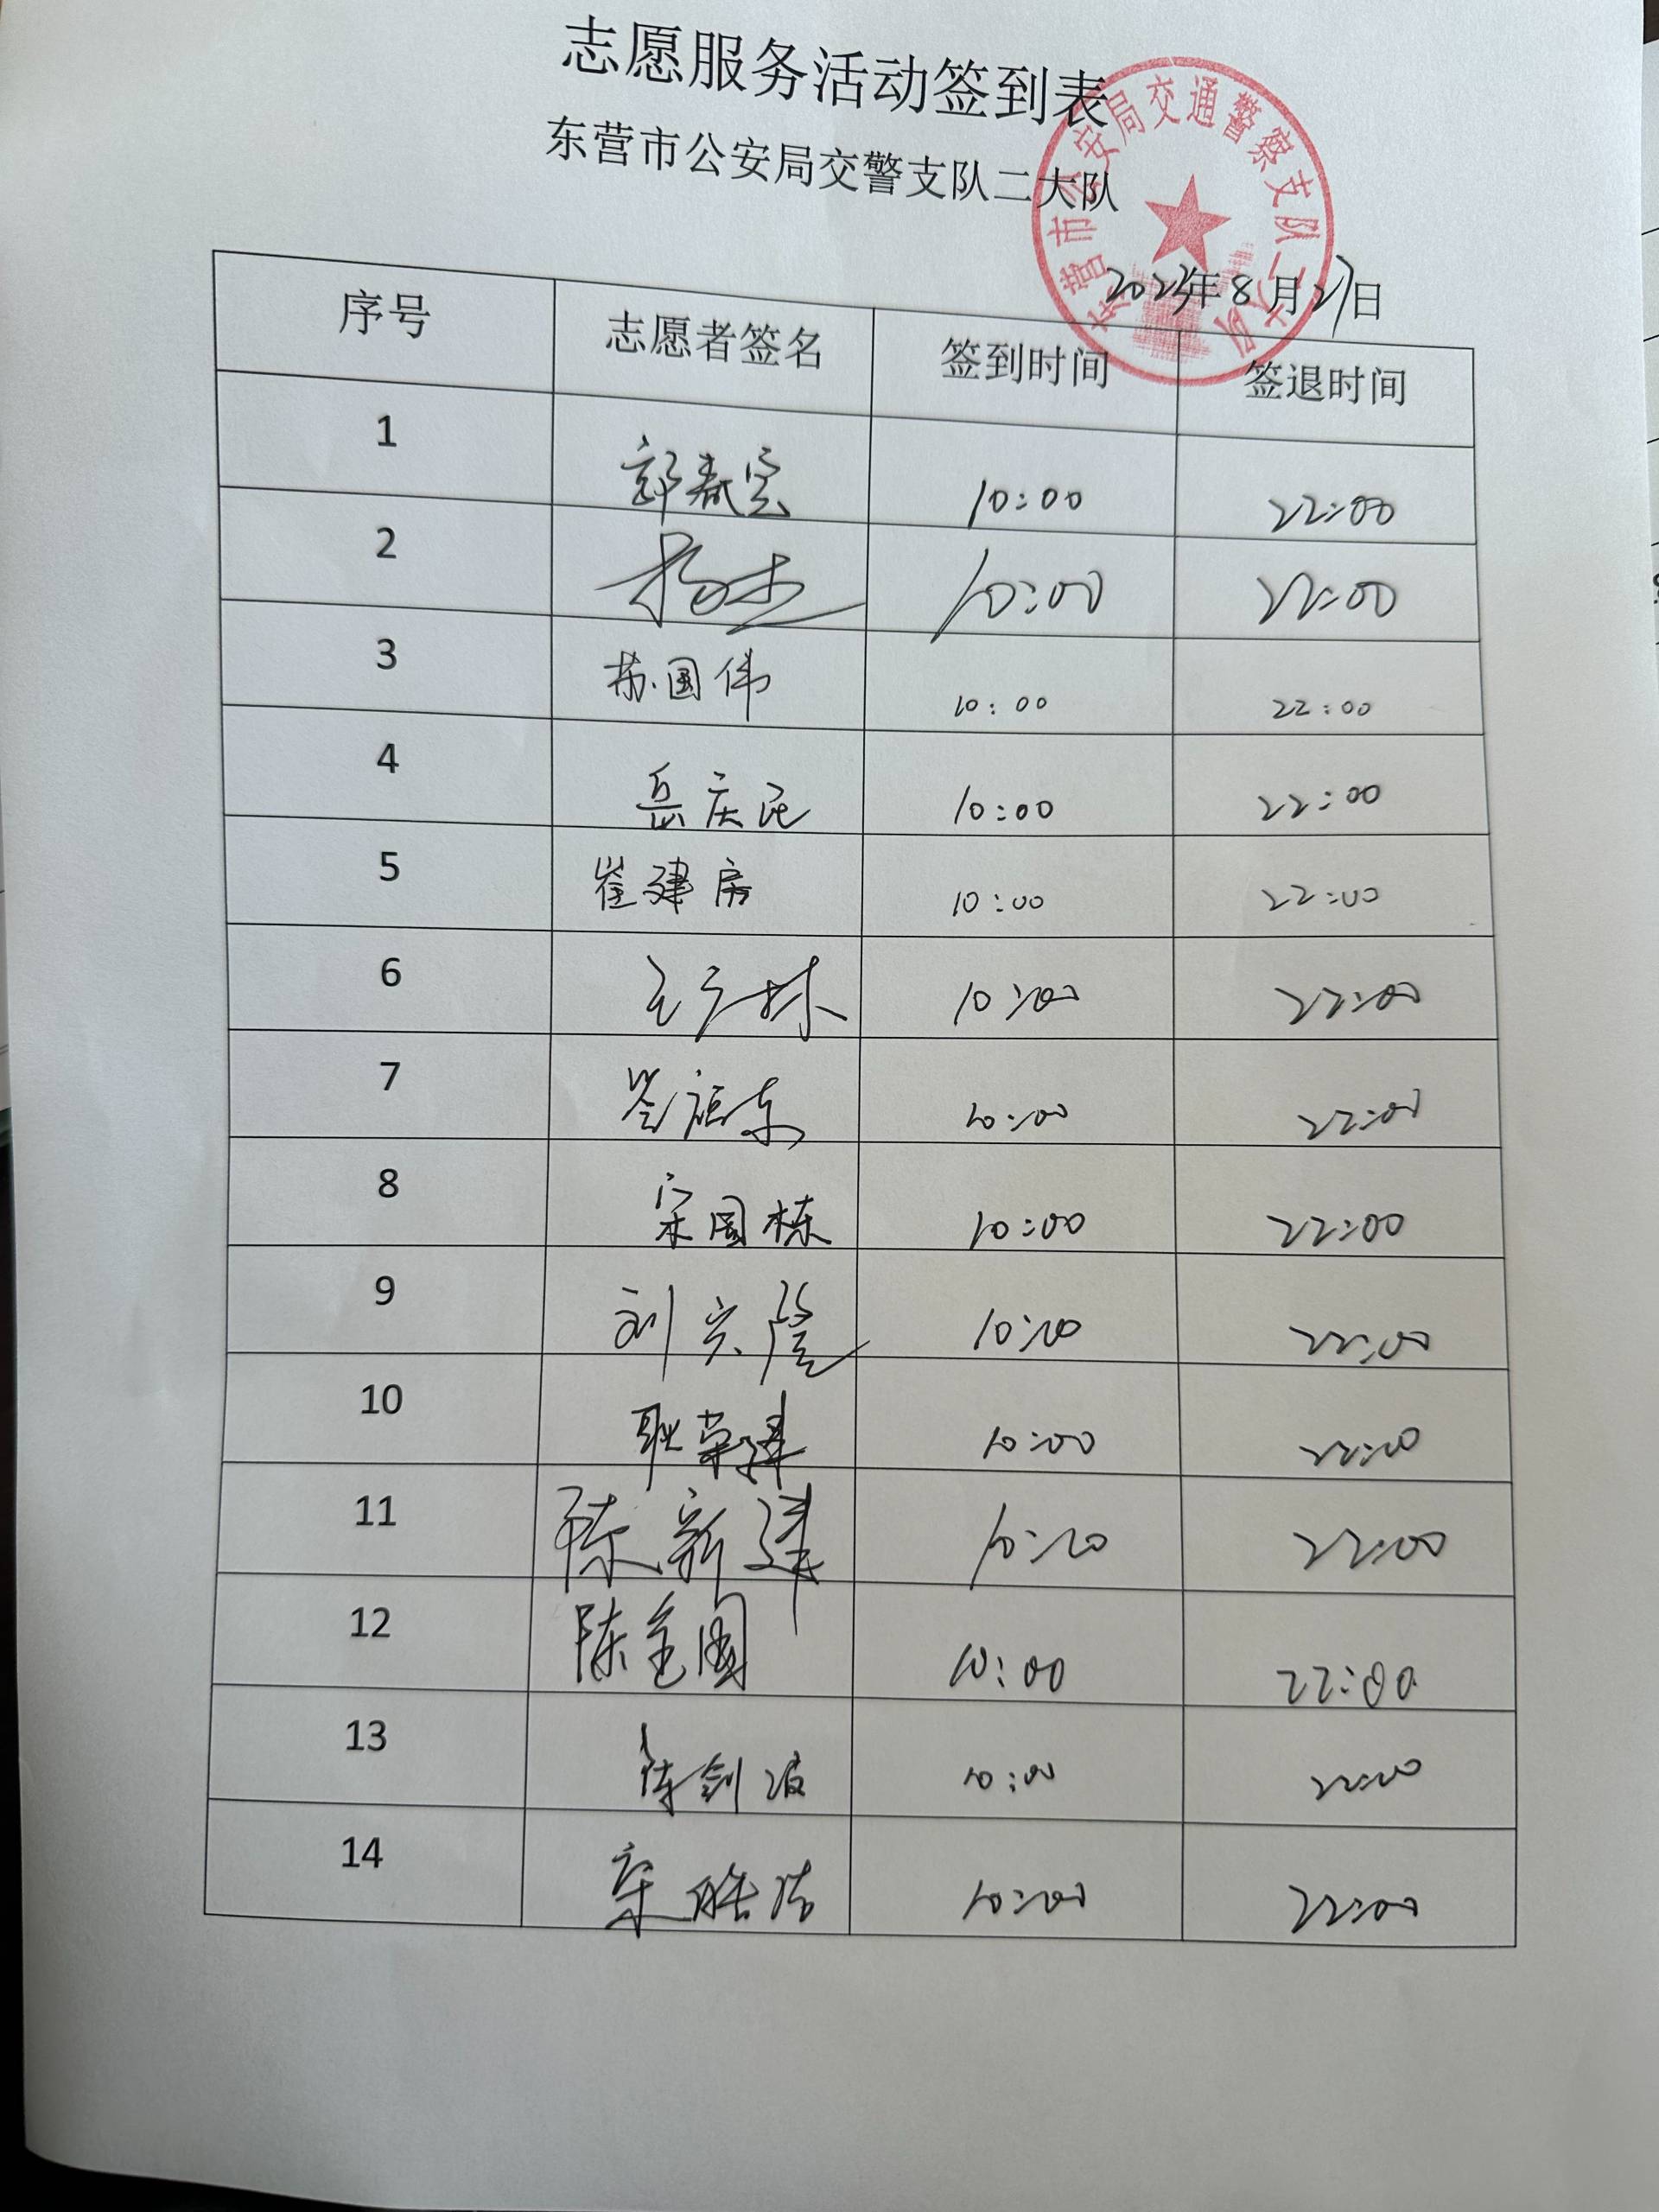 志愿服务活动签到表
东营市公安局交警支队二大队
东营市公安局交通警察支队二大队
年8月27日
序号 志愿者签名 签到时间 签退时间
1 郭春 10:00 22:00
2 杨杰 10:00 22:00
3 苏国伟 10:00 22:00
4 岳庆 10:00 22:00
5 崔建房 10:00 22:00
6 王广林 10:00 22:00
7 10:00 22:00
8 宋国栋 10:00 22:00
9 刘兴隆 10:00 22:00
10 耿荣 10:00 22:00
11 陈新建 10:00 22:00
12 陈金国 10:00 22:00
13 陈剑波 10:00 22:00
14 10:00 22:00